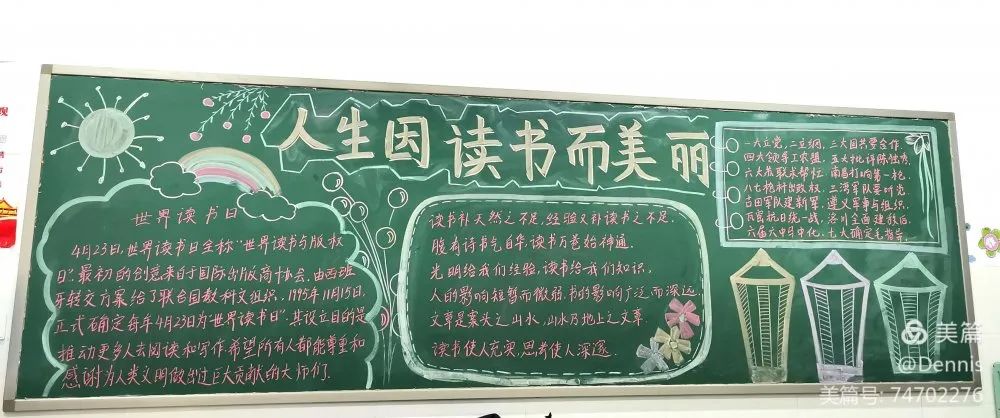 人生因读书而美丽
世界读书日
4月23日,世界读书日全称"世界读书与版权
日".最初的创意来自于国际出版商协会.由西班
牙转交方案给了联合国教科文组织,1995年11月15日,
正式确定每年4月23日为"世界读书日".其设立目的是
推动更多人去阅读和写作,希望所有人都能尊重和
感谢为人类文明做出过巨大贡献的大师们.
读书补天然之不足,经验又补读书之不足.
腹有诗书气自华,读书万卷始神通.
光明给我们经验,读书给我们知识,
人的影响短暂而微弱,书的影响广泛而深远
文章是案头之山水,山水乃地上之文章.
读书使人充实,思考使人深邃.
一大立党,二立纲,三大国共要合作.
四大领导工农盟,五大批评陈独秀,
六大苏联术帮杠,南昌打响第一枪.
八七枪杆出政权,三湾军队要听党
古田军队建新军,遵义军事与组织
瓦窑抗日统一战,洛川全面建敌后.
六届六中中化,七大确定毛指导.
美篇
@Dennis
美篇号:74702276